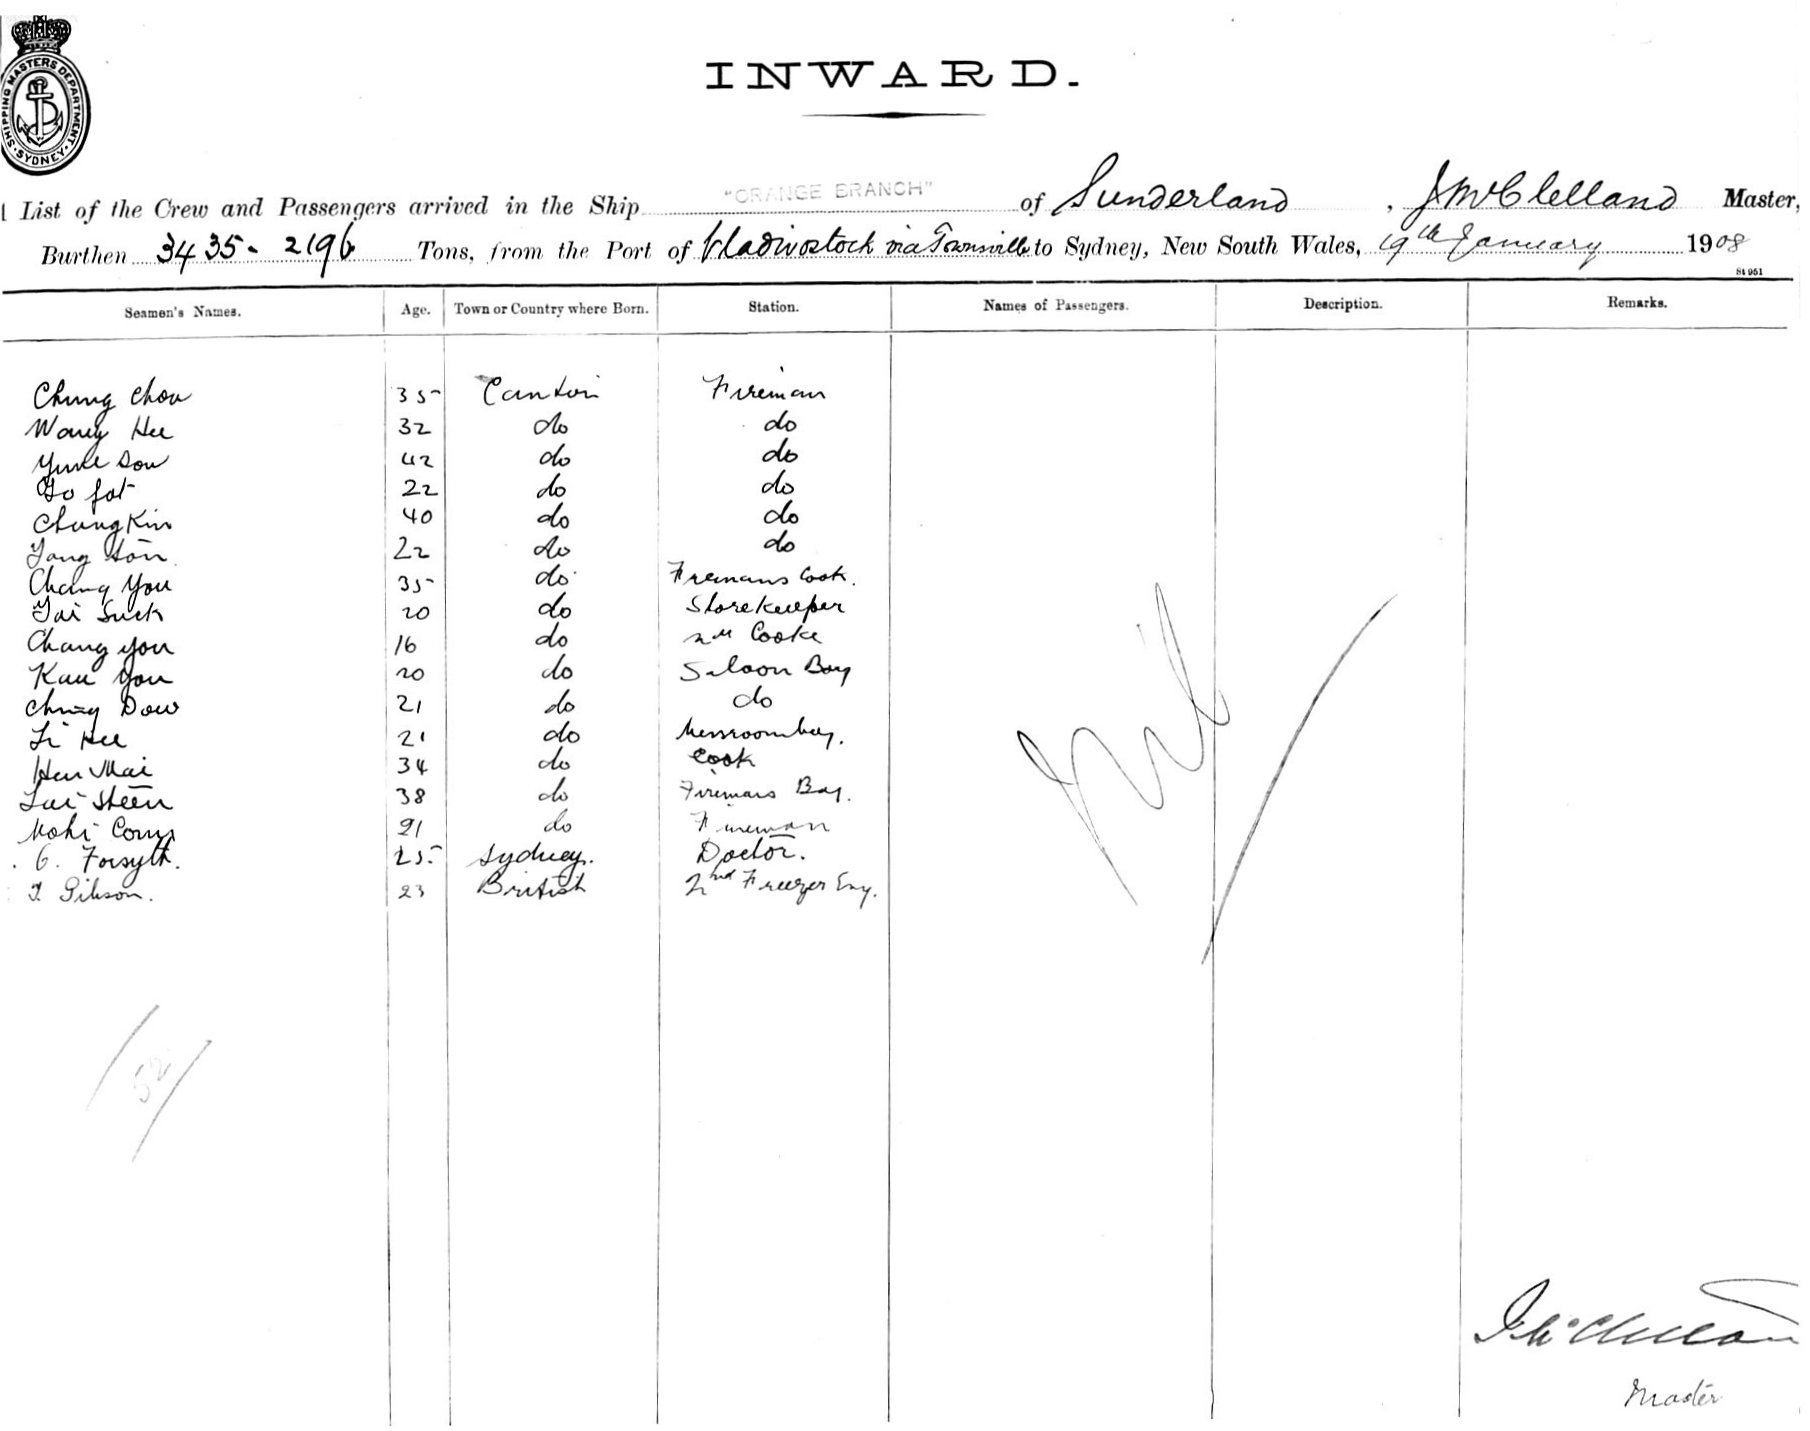 SHIPPING MASTERS DEPARTMENT. SYDNEY.
INWARD.
List of the Crew and Passengers arrived in the Ship "ORANGE BRANCH" of Sunderland, J McClelland Master,
Burthen 3435 - 2196 Tons, from the Port of Vladivostock via Townsville to Sydney, New South Wales, 19th January 1908
St 951
Seamen's Names. Age. Town or Country where Born. Station. Names of Passengers. Description. Remarks.
Chung Chou 35 Canton Fireman
Wong Hee 32 do do
Sow 42 do do
Go fat 22 do do
Chung Kin 40 do do
22 do do
Chang You 35 do Firemans Cook.
Tai Suck 20 do Storekeeper
Chang you 16 do Cooke
Kau You 20 do Saloon Boy
Dow 21 do do
Li Hee 21 do Messroomboy.
Hen Mai 34 do Cook
38 do Firemans Boy.
21 do Fireman
G. Forsyth. 25 Sydney. Doctor.
T. Gibson. 23 British 2nd Freezer Eng.
Nil
52
J McClelland
Master